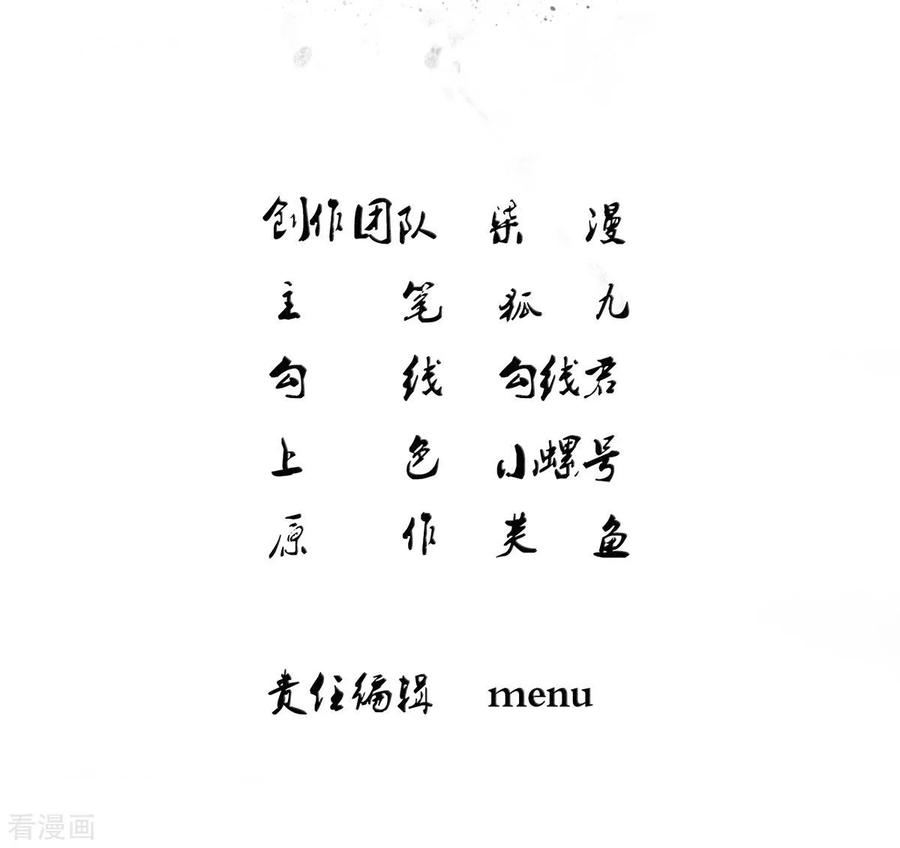 创作团队 柒漫
主笔 狐九
勾线 勾线君
上色 小螺号
原作 芙鱼
责任编辑 menu
看漫画